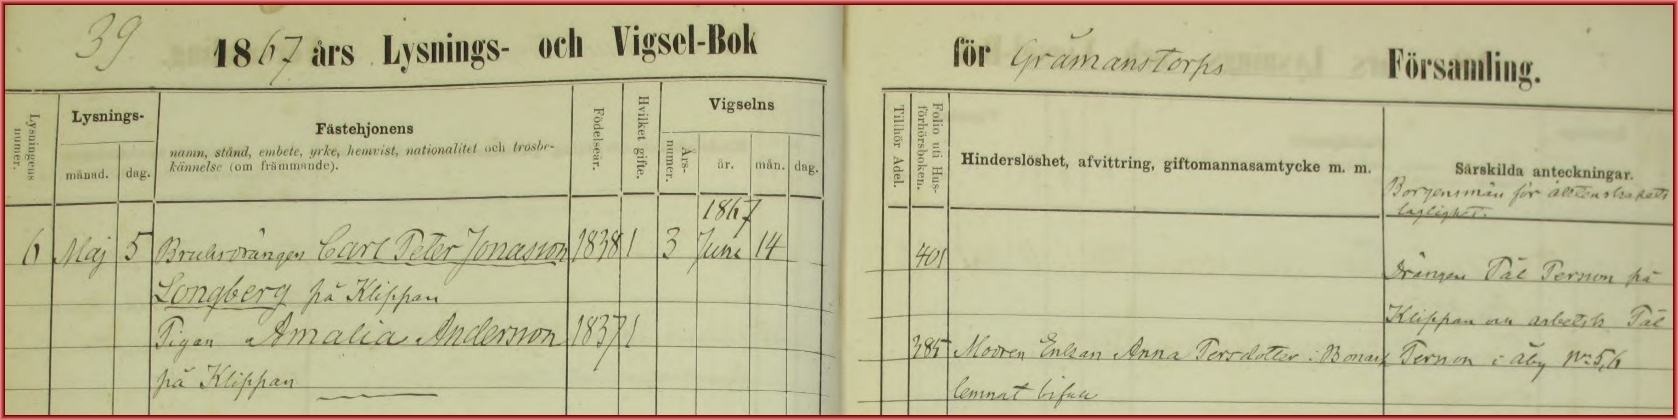 39
1867 års Lysnings- och Vigsel-Bok
för Gråmanstorps Församling.
Lysningens nummer.
Lysnings-
månad.
dag.
Fästehjonens
namn, stånd, embete, yrke, hemvist, nationalitet och trosbe-
kännelse (om främmande).
Födelseår.
Hvilket gifte.
Vigselns
Års-
nummer.
år.
mån.
dag.
Tillhör Adel.
Folio uti Hus-
förhörsboken.
Hinderslöshet, afvittring, giftomannasamtycke m. m.
Särskilda anteckningar.
Borgensmän för äktenskapets
laglighet.
1867
6 Maj 5 Bruksdrängen Carl Peter Jonasson 1838 1 3 Juni 14
401
Longberg på Klippan
Drängen Pål Person på
Pigan Amalia Anderson 1837 1
Klippan och arbetsk Pål
385 Modren Enkan Anna Persdotter i Bonarp
Person i Åby No 5,6
på Klippan
lemnat bifall